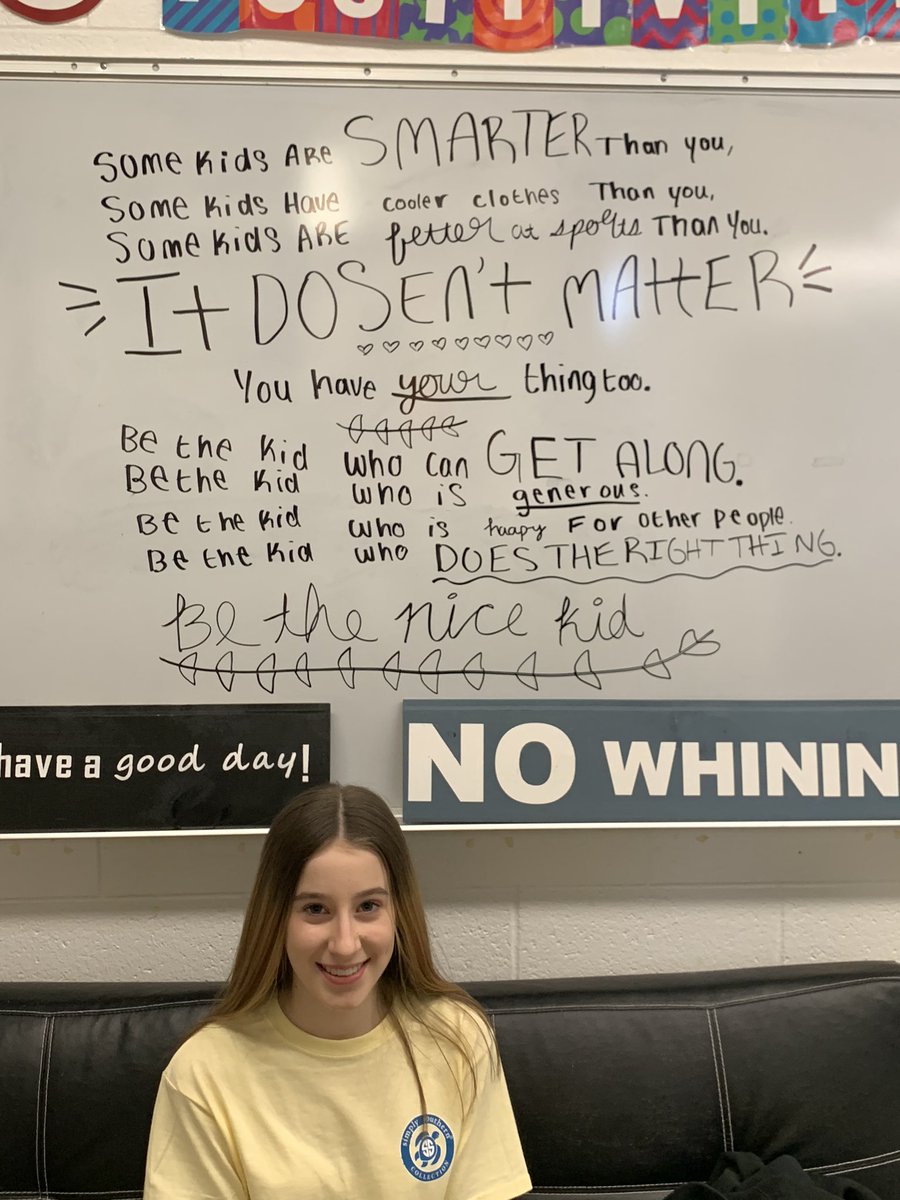 POSITIVITY
Some Kids ARe SMARTER Than you,
Some Kids Have cooler clothes Than you,
Some Kids ARE better at sports Than You.
It DOSEn't MAttER
You have your thing too.
Be the kid who can GET ALONG.
Be the kid who is generous.
Be the kid who is happy For other People.
Be the kid who DOES THE RIGHT THING.
Be the nice kid
have a good day!
NO WHININ
simply southern
COLLECTION